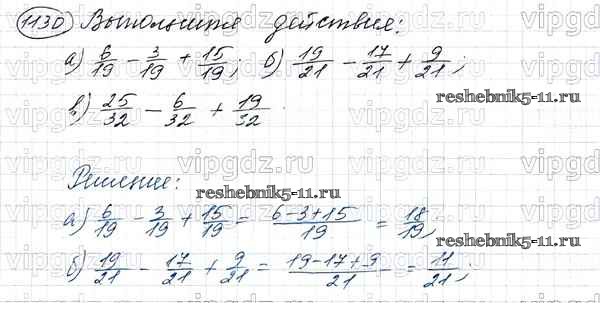 1130 Выполните действия:
а) 6/19 - 3/19 + 15/19; б) 19/21 - 17/21 + 9/21;
в) 25/32 - 6/32 + 19/32.
reshebnik5-11.ru
Решение:
reshebnik5-11.ru
а) 6/19 - 3/19 + 15/19 = (6-3+15)/19 = 18/19;
reshebnik5-11.ru
б) 19/21 - 17/21 + 9/21 = (19-17+9)/21 = 11/21;
vipgdz.ru